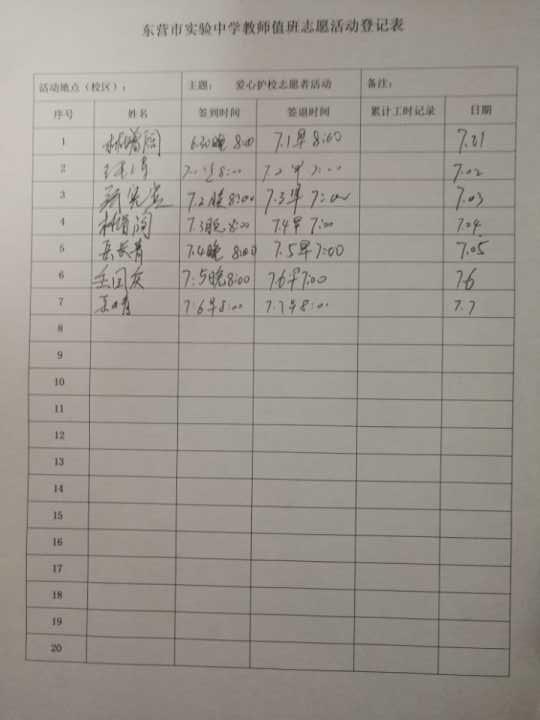 东营市实验中学教师值班志愿活动登记表
活动地点（校区）： 主题： 爱心护校志愿者活动 备注：
序号 姓名 签到时间 签退时间 累计工时记录 日期
1 林增阔 6.30晚 8:00 7.1早 8:00 7.01
2 7.02
3 7.2晚 8:00 7.3早 7:00 7.03
4 林增阔 7.3晚 8:00 7.4早 7:00 7.04
5 岳长青 7.4晚 8:00 7.5早 7:00 7.05
6 7.5晚 8:00 7.6早 7:00 7.6
7 7.6早 8:00 7.7早 8:00 7.7
8
9
10
11
12
13
14
15
16
17
18
19
20